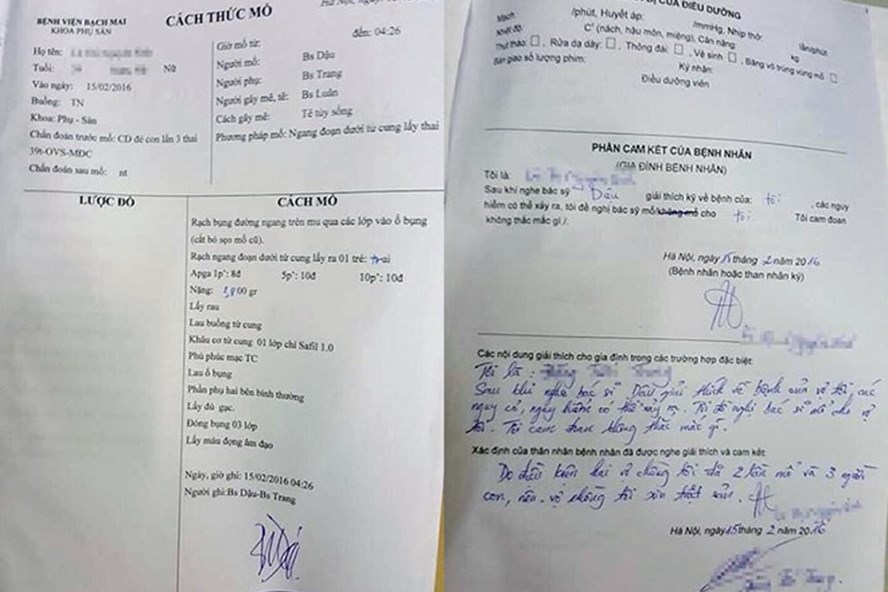 BỆNH VIỆN BẠCH MAI
KHOA PHỤ SẢN
CÁCH THỨC MỔ
Họ tên:
Tuổi: Nữ
Vào ngày: 15/02/2016
Buồng: TN
Khoa: Phụ - Sản
Chẩn đoán trước mổ: CD đẻ con lần 3 thai
39t-OVS-MĐC
Chẩn đoán sau mổ: nt
Giờ mổ từ: đến: 04:26
Người mổ: Bs Dậu
Người phụ: Bs Trang
Người gây mê, tê: Bs Luân
Cách gây mê: Tê tủy sống
Phương pháp mổ: Ngang đoạn dưới tử cung lấy thai
LƯỢC ĐỒ
CÁCH MỔ
Rạch bụng đường ngang trên mu qua các lớp vào ổ bụng
(cắt bỏ sẹo mổ cũ).
Rạch ngang đoạn dưới tử cung lấy ra 01 trẻ: trai
Apga 1p': 8đ 5p': 10đ 10p': 10đ
Nặng: 3,800 gr
Lấy rau
Lau buồng tử cung
Khâu cơ tử cung 01 lớp chỉ Safil 1.0
Phủ phúc mạc TC
Lau ổ bụng
Phần phụ hai bên bình thường
Lấy đủ gạc.
Đóng bụng 03 lớp
Lấy máu đọng âm đạo
Ngày, giờ ghi: 15/02/2016 04:26
Người ghi:Bs Dậu-Bs Trang
BỊ CỦA ĐIỀU DƯỠNG
Mạch /phút, Huyết áp: /mmHg, Nhịp thở: lần/phút
Nhiệt độ: C° (nách, hậu môn, miệng), Cân nặng: kg
Thụt tháo □, Rửa dạ dày: □, Thông đái: □, Vệ sinh □, Băng vô trùng vùng mổ □
Bàn giao số lượng phim: Ký nhận:
Điều dưỡng viên
PHẦN CAM KẾT CỦA BỆNH NHÂN
(GIA ĐÌNH BỆNH NHÂN)
Tôi là:
Sau khi nghe bác sỹ Dậu giải thích kỹ về bệnh của: tôi, các nguy
hiểm có thể xảy ra, tôi đề nghị bác sỹ mổ/không mổ cho tôi Tôi cam đoan
không thắc mắc gì./.
Hà Nội, ngày 15 tháng 2 năm 2016
(Bệnh nhân hoặc thân nhân ký)
Các nội dung giải thích cho gia đình trong các trường hợp đặc biệt:
Tôi là:
Sau khi nghe bác sĩ Dậu giải thích về bệnh của vợ tôi, các
nguy cơ, nguy hiểm có thể xảy ra. Tôi đề nghị bác sĩ mổ cho vợ
tôi. Tôi cam đoan không thắc mắc gì.
Xác định của thân nhân bệnh nhân đã được nghe giải thích và cam kết:
Do điều kiện hai vợ chồng tôi đã 2 lần mổ và 3 người
con, nên vợ chồng tôi xin triệt sản.
Hà Nội, ngày 15 tháng 2 năm 2016